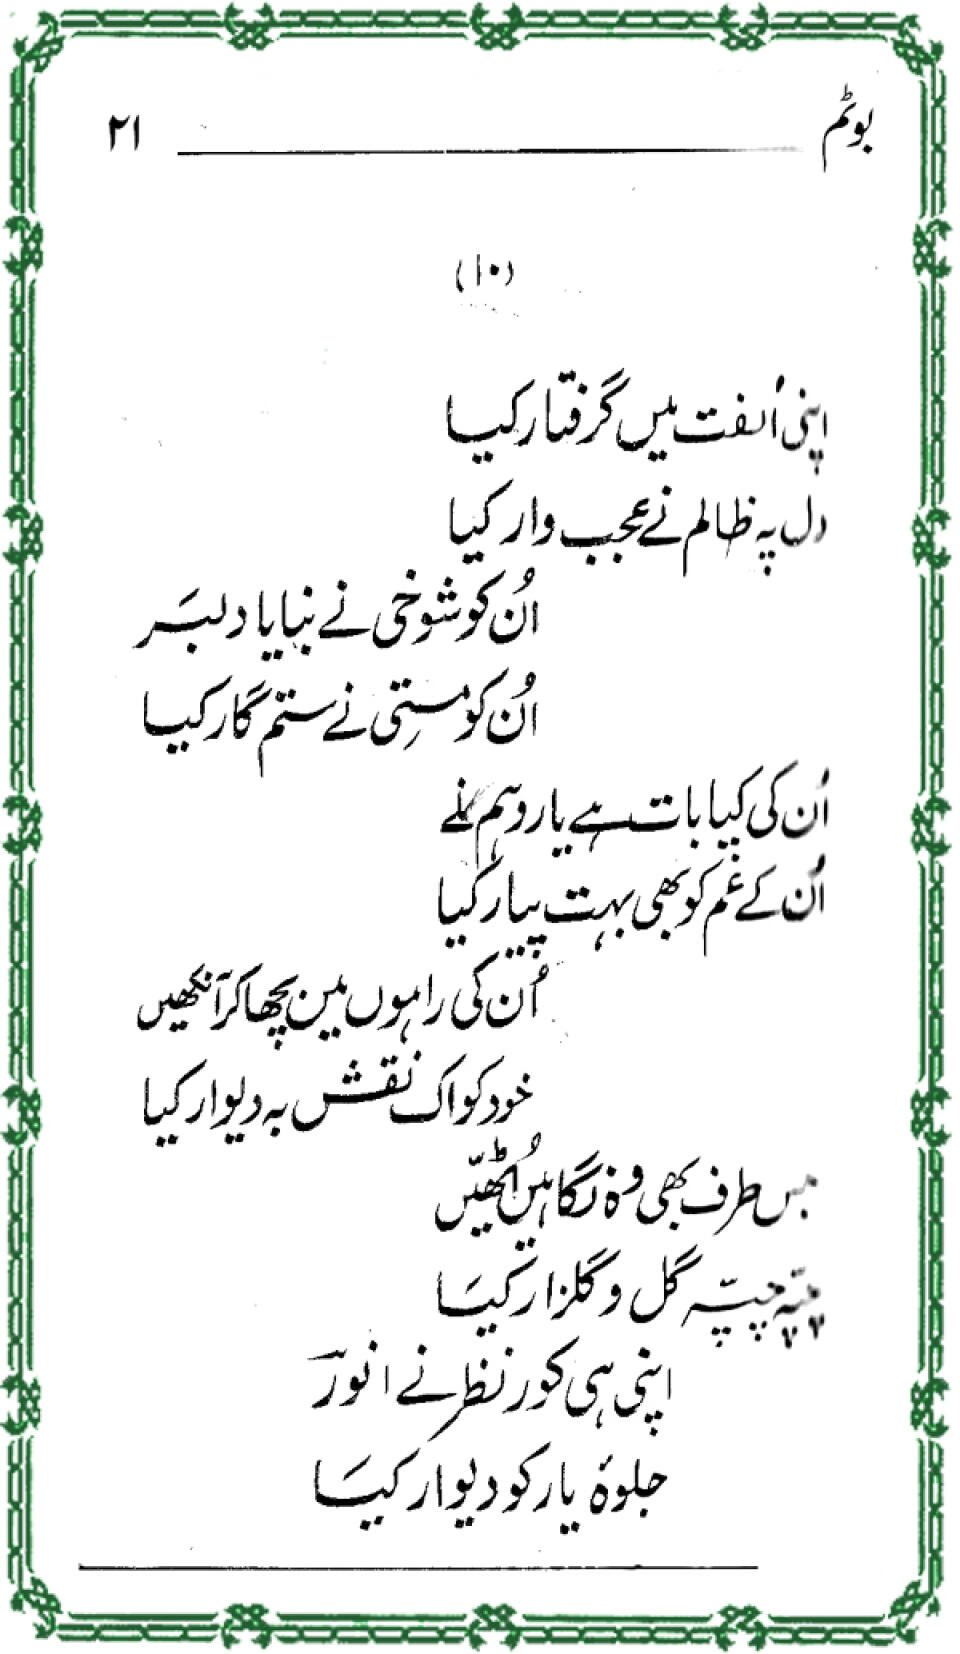 بوٹم ۲۱
(۱۰)
اپنی اُلفت میں گرفتار کیا
دل پہ ظالم نے عجب وار کیا
اُن کو شوخی نے بنایا دلبَر
اُن کو مستی نے ستم گار کیا
اُن کی کیا بات ہے یارو ہم نے
اُن کے غم کو بھی بہت پیار کیا
اُن کی راہوں میں بچھا کر آنکھیں
خود کو اک نقش بہ دیوار کیا
جس طرف بھی وہ نگاہیں اُٹھیّں
چپّہ چپّہ گل و گلزار کیَا
اپنی ہی کور نظر نے انورؔ
جلوۂ یار کو دیوار کیسَا